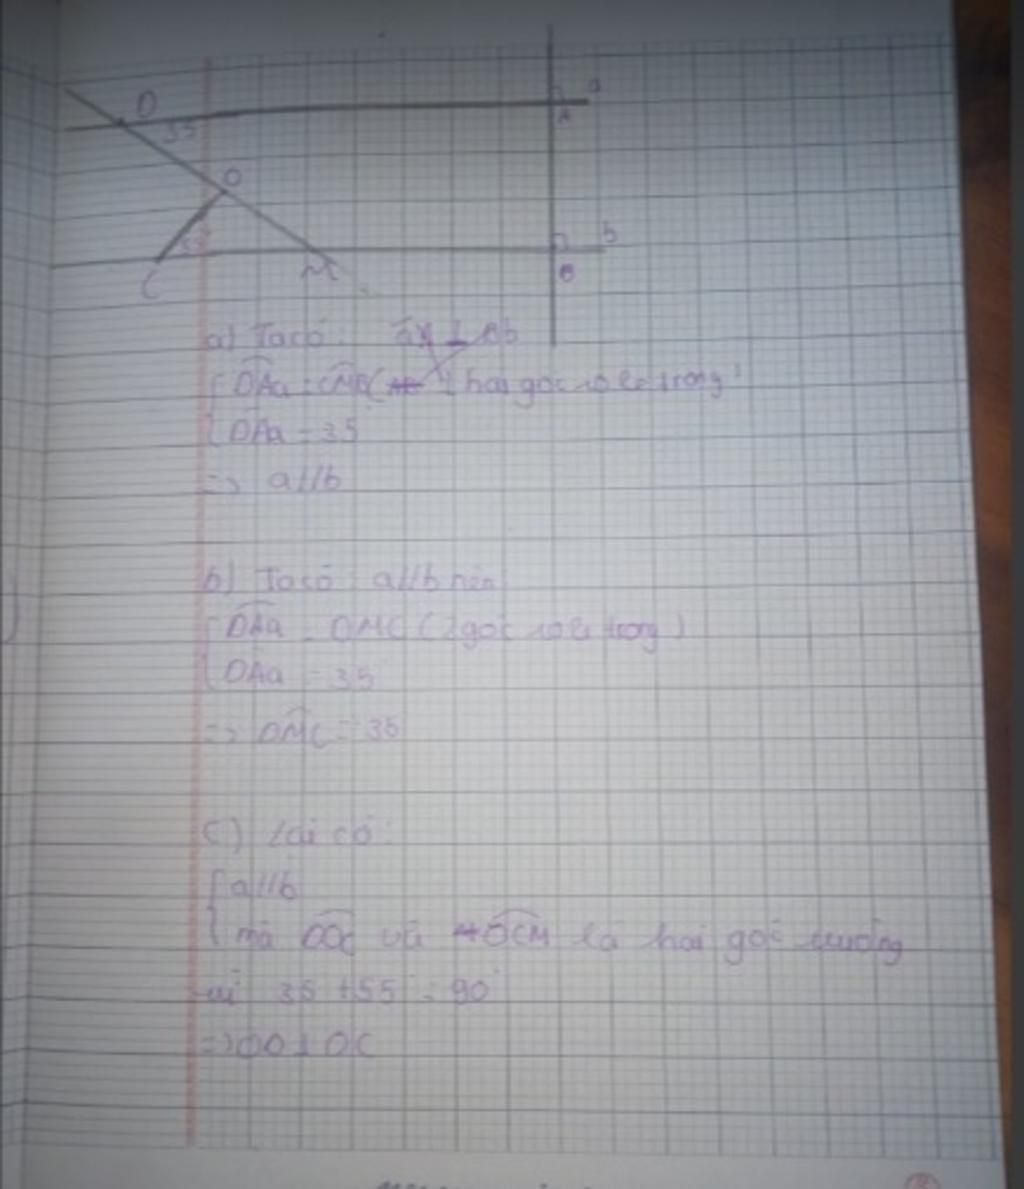 D
35
a
A
O
55
b
C
M
B
a) Ta có:
DAa = CMB ( 2 hai góc so le trong)
DAa = 35
=> a//b
b) Ta có: a//b nên
DAa = OMC (2 góc so le trong)
DAa = 35
=> OMC = 35
c) Lại có:
a//b
mà DOC và OCM là hai góc
vì 35 + 55 = 90
=> DO ⊥ OC